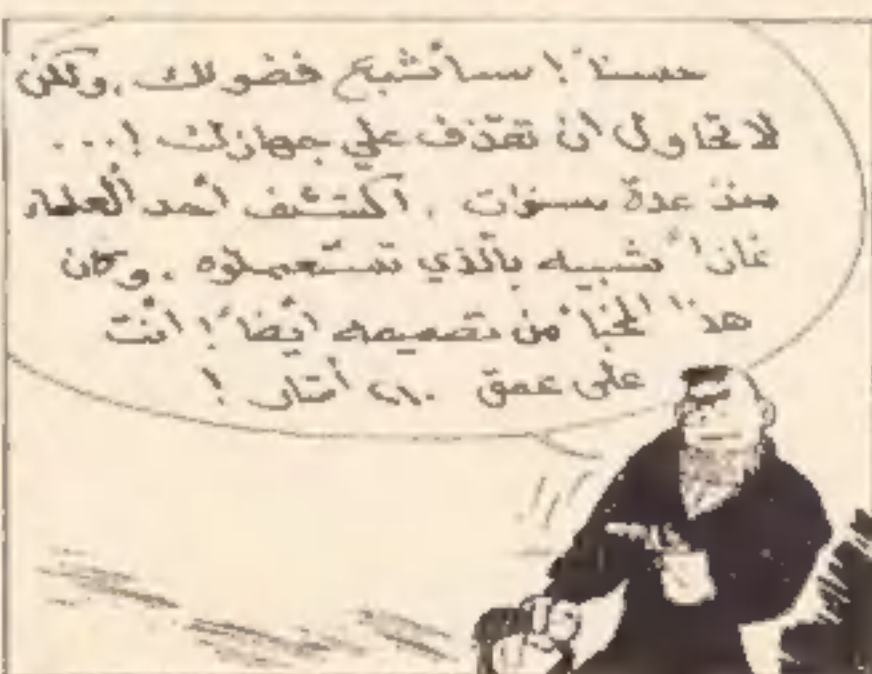 حسناً! سأشبع فضولك . ولكن
لا تحاول أن تقذف علي جهازك !...
منذ عدة سنوات . اكتشف أحد العلماء
غازاً شبيه بالذي تستعملوه . وكان
هذا المخبأ من تصميمه أيضاً! أنت
على عمق أمتار !